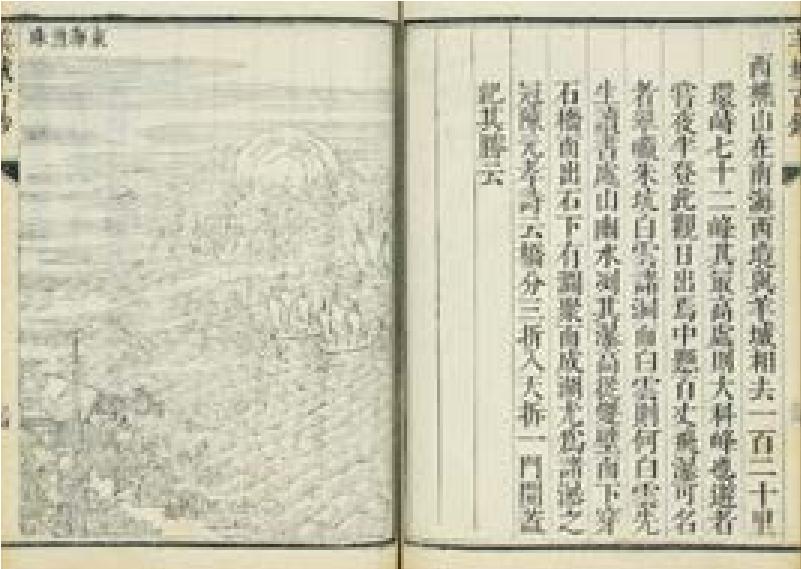 西樵山在南海西境與羊城相去一百二十里
環峙七十二峰其最高處則大科峰也遊者
嘗夜半登此觀日出焉中懸百丈飛瀑可名
者翠巖朱坑白雲諸洞而白雲則何白雲先
生讀書處山幽水冽其瀑高從雙壁而下穿
石橋而出石下有澗聚而成湖尤爲諸瀑之
冠陳元孝詩云橋分三折入天折一門開蓋
記其勝云